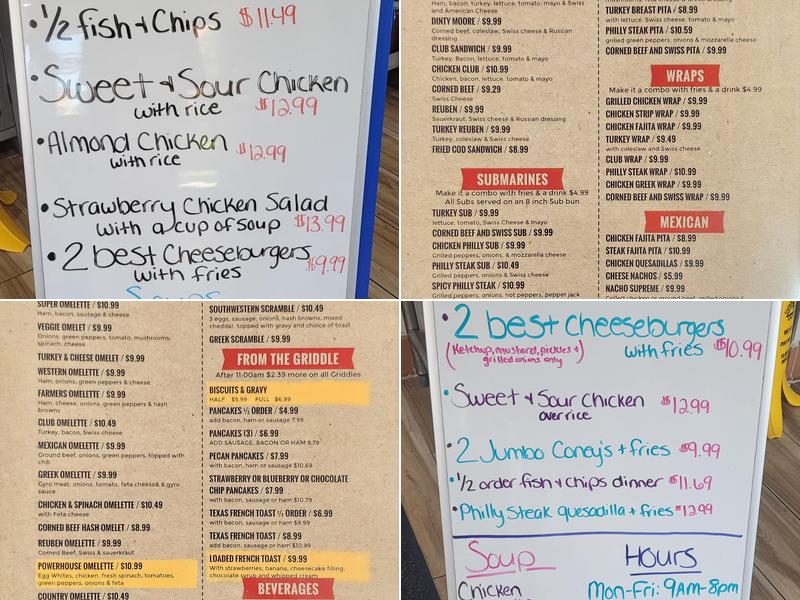 • 1/2 fish + Chips $11.49
• Sweet + Sour Chicken
with rice $12.99
• Almond Chicken $12.99
with rice
• Strawberry Chicken Salad
with a cup of soup $13.99
• 2 best Cheeseburgers
with fries $9.99
Ham, bacon, turkey, lettuce, tomato, mayo & Swiss
and American Cheese
DINTY MOORE / $9.99
Corned beef, coleslaw, Swiss cheese & Russian
dressing
CLUB SANDWICH / $9.99
Turkey, Bacon, lettuce, tomato & mayo
CHICKEN CLUB / $10.99
Chicken, bacon, lettuce, tomato & mayo
CORNED BEEF / $9.29
Swiss Cheese
REUBEN / $9.99
Sauerkraut, Swiss cheese & Russian dressing
TURKEY REUBEN / $9.99
Turkey, coleslaw & Swiss cheese
FRIED COD SANDWICH / $8.99
SUBMARINES
Make it a combo with fries & a drink $4.99
All Subs served on an 8 inch Sub bun
TURKEY SUB / $9.99
lettuce, tomato, Swiss Cheese & mayo
CORNED BEEF AND SWISS SUB / $9.99
CHICKEN PHILLY SUB / $9.99
Grilled peppers, onions, & mozzarella cheese
PHILLY STEAK SUB / $10.49
Grilled peppers, onions & Swiss cheese
SPICY PHILLY STEAK / $10.99
Grilled peppers, onions, hot peppers, pepper jack
TURKEY BREAST PITA / $8.99
with lettuce, Swiss cheese, tomato & mayo
PHILLY STEAK PITA / $10.59
grilled green peppers, onions & mozzarella cheese
CORNED BEEF AND SWISS PITA / $9.99
WRAPS
Make it a combo with fries & a drink $4.99
GRILLED CHICKEN WRAP / $9.99
CHICKEN STRIP WRAP / $9.99
CHICKEN FAJITA WRAP / $9.99
TURKEY WRAP / $9.49
with coleslaw and Swiss cheese
CLUB WRAP / $9.99
PHILLY STEAK WRAP / $10.99
CHICKEN GREEK WRAP / $9.99
CORNED BEEF AND SWISS WRAP / $9.99
MEXICAN
CHICKEN FAJITA PITA / $8.99
STEAK FAJITA PITA / $10.99
CHICKEN QUESADILLAS / $9.99
CHEESE NACHOS / $5.99
NACHO SUPREME / $9.99
SUPER OMELETTE / $10.99
Ham, bacon, sausage & cheese
VEGGIE OMELET / $9.99
Onions, green peppers, tomato, mushrooms,
spinach, cheese
TURKEY & CHEESE OMELET / $9.99
WESTERN OMELETTE / $9.99
Ham, onions, green peppers & cheese
FARMERS OMELETTE / $9.99
Ham, cheese, onions, green peppers & hash
browns
CLUB OMELETTE / $10.49
Turkey, bacon, Swiss cheese
MEXICAN OMELETTE / $9.99
Ground beef, onions, green peppers, topped with
chili
GREEK OMELETTE / $9.99
Gyro meat, onions, tomato, feta cheese& gyro
sauce
CHICKEN & SPINACH OMELETTE / $10.49
with Feta cheese
CORNED BEEF HASH OMELET / $8.99
REUBEN OMELETTE / $9.99
Corned Beef, Swiss & sauerkraut
POWERHOUSE OMELETTE / $10.99
Egg Whites, chicken, fresh spinach, tomatoes,
green peppers, onions & feta
COUNTRY OMELETTE / $10.49
SOUTHWESTERN SCRAMBLE / $10.49
3 eggs, sausage, onions, hash browns, mixed
cheddar, topped with gravy and choice of toast
GREEK SCRAMBLE / $9.99
FROM THE GRIDDLE
After 11:00am $2.39 more on all Griddles
BISCUITS & GRAVY
HALF $5.99 FULL $6.99
PANCAKES ½ ORDER / $4.99
add bacon, ham or sausage 7.99
PANCAKES (3) / $6.99
ADD SAUSAGE, BACON OR HAM 9.79
PECAN PANCAKES / $7.99
with bacon, ham or sausage $10.69
STRAWBERRY OR BLUEBERRY OR CHOCOLATE
CHIP PANCAKES / $7.99
with bacon, sausage or ham $10.79
TEXAS FRENCH TOAST ½ ORDER / $6.99
with bacon, sausage or ham $9.99
TEXAS FRENCH TOAST / $8.99
add bacon, sausage or ham $10.99
LOADED FRENCH TOAST / $9.99
With strawberries, banana, cheesecake filling,
chocolate syrup and whipped cream
BEVERAGES
• 2 best Cheeseburgers
(Ketchup, mustard, pickles + with fries $10.99
grilled onions only)
• Sweet + Sour Chicken $12.99
over rice
• 2 Jumbo Coney's + fries $9.99
• 1/2 order fish + Chips dinner $11.69
• Philly Steak quesadilla + fries $12.99
Soup Hours
Chicken Mon-Fri: 9AM-8pm